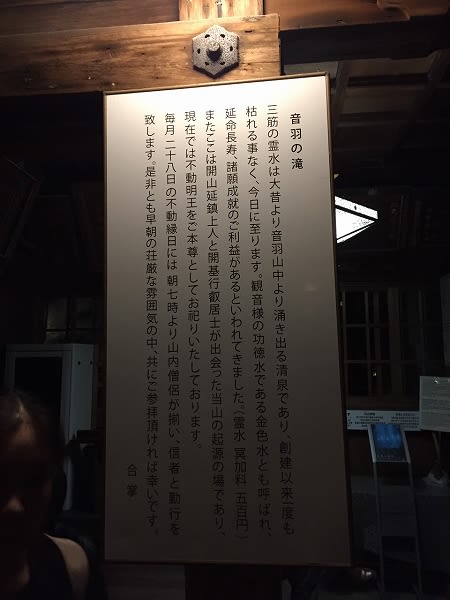 音羽の滝
三筋の霊水は大昔より音羽山中より涌き出る清泉であり、創建以来一度も
枯れる事なく、今日に至ります。観音様の功徳水である金色水とも呼ばれ、
延命長寿、諸願成就のご利益があるといわれてきました。（霊水 冥加料 五百円）
またここは開山延鎮上人と開基行叡居士が出会った当山の起源の場であり、
現在では不動明王をご本尊としてお祀りいたしております。
毎月二十八日の不動縁日には朝七時より山内僧侶が揃い、信者と勤行を
致します。是非とも早朝の荘厳な雰囲気の中、共にご参拝頂ければ幸いです。
合掌